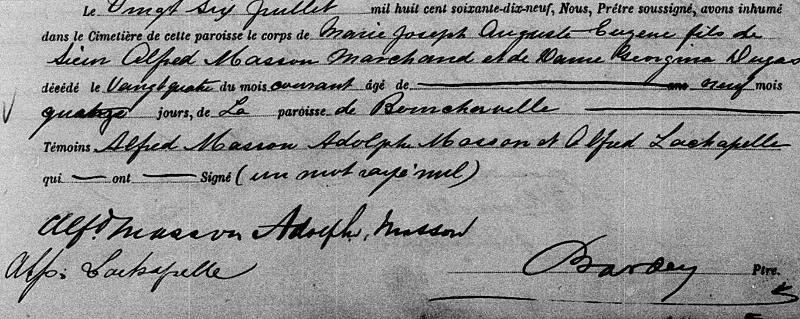 Le Vingt Six Juillet mil huit cent soixante-dix-neuf, Nous, Prêtre soussigné, avons inhumé
dans le Cimetière de cette paroisse le corps de Marie Joseph Auguste Eugène fils de
Sieur Alfred Masson Marchand et de Dame Georgina Dugas
décédé le Vingt quatre du mois courant âgé de neuf mois
quatorze jours, de La paroisse de Boucherville
Témoins Alfred Masson Adolphe Masson et Alfred Lachapelle
qui ont Signé (un mot rayé nul)
Alfd Masson Adolph. Masson
Alf: Lachapelle
Ptre.